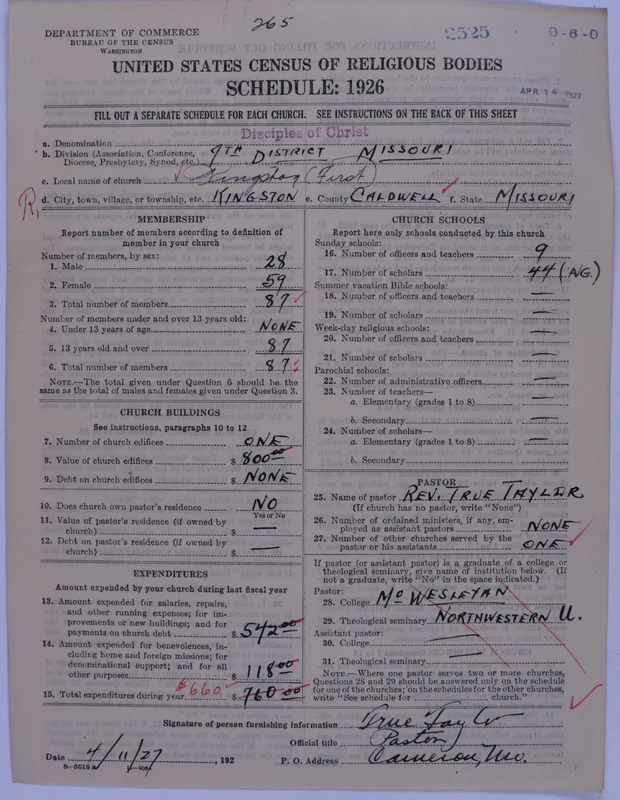 265
2525
0-6-0
DEPARTMENT OF COMMERCE
BUREAU OF THE CENSUS
WASHINGTON
UNITED STATES CENSUS OF RELIGIOUS BODIES
SCHEDULE: 1926
APR 14 1927
FILL OUT A SEPARATE SCHEDULE FOR EACH CHURCH. SEE INSTRUCTIONS ON THE BACK OF THIS SHEET
Disciples of Christ
a. Denomination
b. Division (Association, Conference, Diocese, Presbytery, Synod, etc.) 9TH DISTRICT MISSOURI
c. Local name of church Kingston (First)
R, d. City, town, village, or township, etc. KINGSTON e. County CALDWELL f. State MISSOURI
MEMBERSHIP
Report number of members according to definition of
member in your church
Number of members, by sex:
1. Male 28
2. Female 59
3. Total number of members 87
Number of members under and over 13 years old:
4. Under 13 years of age NONE
5. 13 years old and over 87
6. Total number of members 87
NOTE.—The total given under Question 6 should be the
same as the total of males and females given under Question 3.
CHURCH BUILDINGS
See instructions, paragraphs 10 to 12
7. Number of church edifices ONE
8. Value of church edifices $ 800 00
9. Debt on church edifices $ NONE
10. Does church own pastor's residence NO
Yes or No
11. Value of pastor's residence (if owned by
church) $ —
12. Debt on pastor's residence (if owned by
church) $ —
EXPENDITURES
Amount expended by your church during last fiscal year
13. Amount expended for salaries, repairs,
and other running expenses; for im-
provements or new buildings; and for
payments on church debt $ 542 00
14. Amount expended for benevolences, in-
cluding home and foreign missions; for
denominational support; and for all
other purposes $ 118 00
15. Total expenditures during year $660 $ 760 00
CHURCH SCHOOLS
Report here only schools conducted by this church
Sunday schools:
16. Number of officers and teachers 9
17. Number of scholars 44 (AVG.)
Summer vacation Bible schools:
18. Number of officers and teachers —
19. Number of scholars —
Week-day religious schools:
20. Number of officers and teachers —
21. Number of scholars —
Parochial schools:
22. Number of administrative officers —
23. Number of teachers—
a. Elementary (grades 1 to 8) —
b. Secondary —
24. Number of scholars—
a. Elementary (grades 1 to 8) —
b. Secondary —
PASTOR
25. Name of pastor REV. TRUE TAYLOR
(If church has no pastor, write "None")
26. Number of ordained ministers, if any, em-
ployed as assistant pastors NONE
27. Number of other churches served by the
pastor or his assistants ONE
If pastor (or assistant pastor) is a graduate of a college or
theological seminary, give name of institution below. (If
not a graduate, write "No" in the space indicated.)
Pastor:
28. College MO WESLEYAN
29. Theological seminary NORTHWESTERN U.
Assistant pastor:
30. College —
31. Theological seminary —
NOTE.—Where one pastor serves two or more churches,
Questions 28 and 29 should be answered only on the schedule
for one of the churches; on the schedules for the other churches,
write "See schedule for church."
Signature of person furnishing information True Taylor
Official title Pastor
Date 4/11/27, 192 P. O. Address Cameron, Mo.